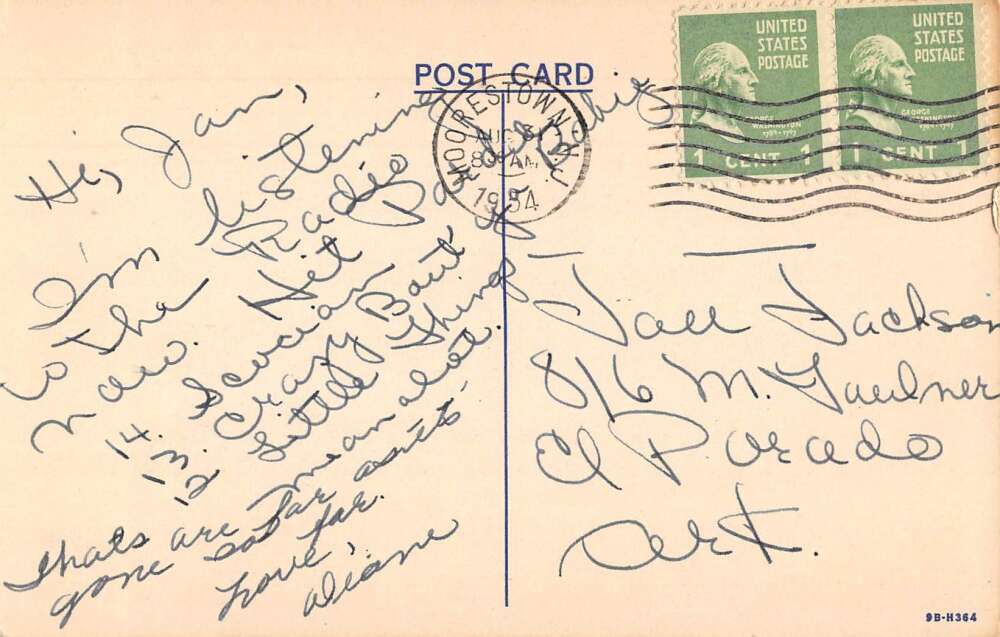 POST CARD
UNITED
STATES
POSTAGE
GEORGE
WASHINGTON
1789-1797
1 CENT 1
UNITED
STATES
POSTAGE
GEORGE
WASHINGTON
1789-1797
1 CENT 1
MOORESTOWN N.J.
AUG
AM
1954
Hi, Jan,
I'm listening
to tha Radio
now. Hit Parade
14. Sevean
13. Crazy Bout ya
12 Little Things
mean alot.
thats are far as its
gone so far.
Love,
Diane
Jackson
816 M. Faulner
El Dorado
Ark.
9B-H364